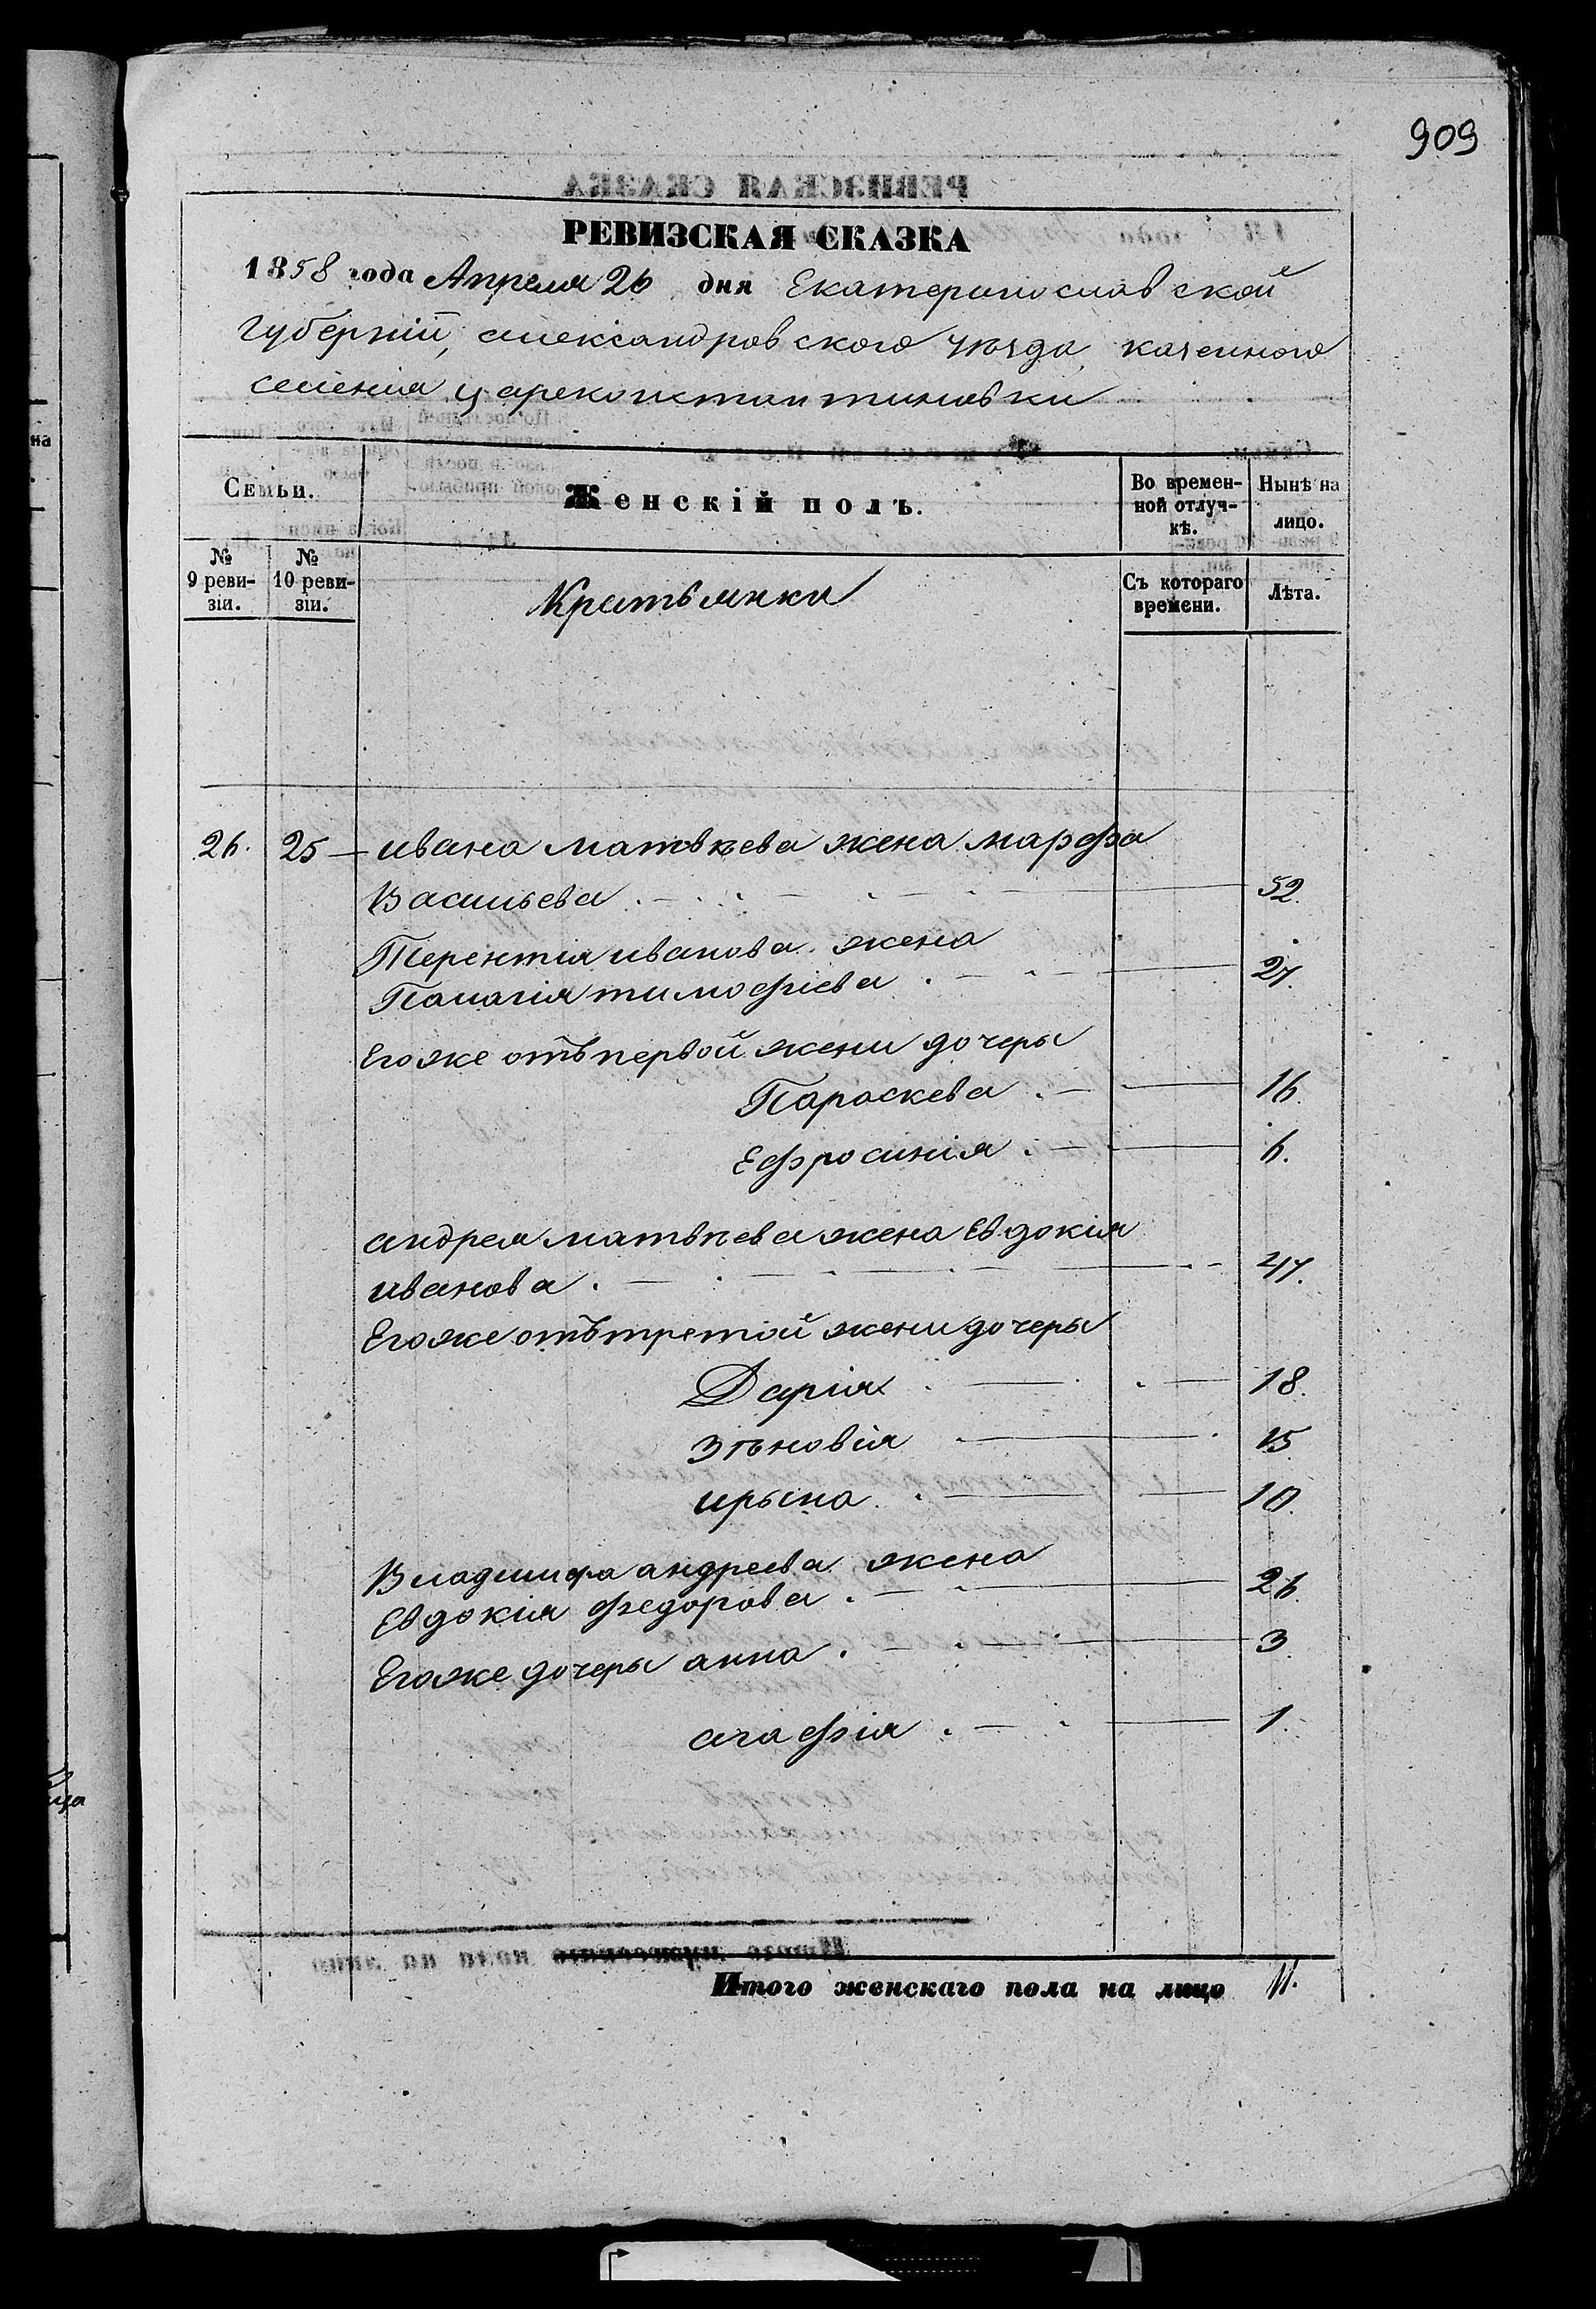 909
РЕВИЗСКАЯ СКАЗКА
1858 года Апреля 26 дня Екатеринославской
Губерніи, александровского уѣзда, казенного
селенія цареконстантиновки
Семьи.
Женскій полъ.
Во времен-
ной отлуч-
кѣ.
Нынѣ на
лицо.
№
9 реви-
зіи.
№
10 реви-
зіи.
Крестьянки
Съ котораго
времени.
Лѣта.
26. 25 — ивана матвѣева жена марфа
Васильева 52.
Терентія иванова жена
Панагія тимофіева 27.
Егоже отъ первой жени дочеры
Параскева 16.
Ефросинія 6.
андрея матвѣева жена Евдокія
иванова 47.
Егоже отъ третой жени дочеры
Дарія 18.
зѣновія 15
ирына 10.
Владимира андреева жена
Евдокія федорова 26.
Егоже дочеры анна 3
агафія 1.
Итого женскаго пола на лицо 11.